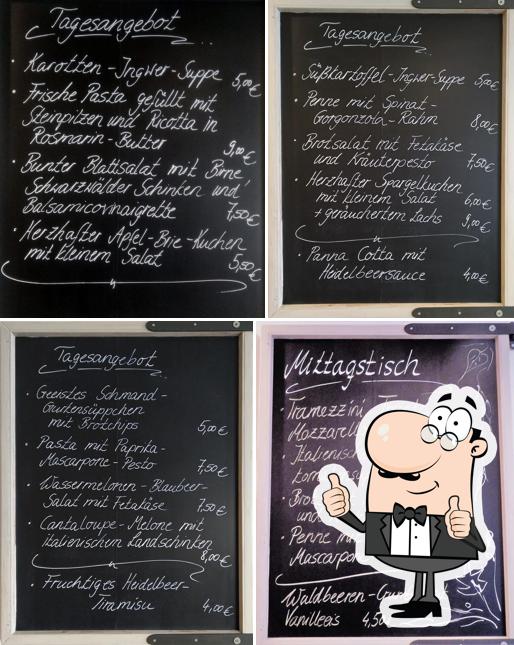 Tagesangebot
· Karotten-Ingwer-Suppe 5,00€
· Frische Pasta gefüllt mit
Steinpilzen und Ricotta in
Rosmarin-Butter 9,00€
· Bunter Blattsalat mit Birne
Schwarzwälder Schinken und
Balsamicovinaigrette 7,50€
· Herzhafter Apfel-Brie-Kuchen
mit kleinem Salat 5,50€
Tagesangebot
· Süßkartoffel-Ingwer-Suppe 5,00€
· Penne mit Spinat-
Gorgonzola-Rahm 8,00€
· Brotsalat mit Fetakäse
und Kräuterpesto 7,50€
· Herzhafter Spargelkuchen
mit kleinem Salat 6,00€
+ geräuchertem Lachs 9,00€
· Panna Cotta mit
Heidelbeersauce 4,00€
Tagesangebot
· Geeistes Schmand-
Gurkensüppchen
mit Brotchips 5,00€
· Pasta mit Paprika-
Mascarpone-Pesto 7,50€
· Wassermelonen-Blaubeer-
Salat mit Fetakäse 7,50€
· Cantaloupe-Melone mit
italienischem Landschinken
8,00€
· Fruchtiges Heidelbeer-
Tiramisu 4,00€
Mittagstisch
· Tramezzini
Mozzarell
· Italienisc
· Bro
und
· Penne m
Mascarpon
Waldbeeren-
Vanilleeis 4,50